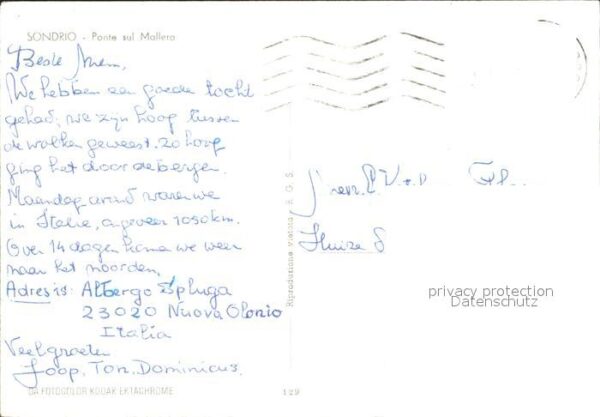 SONDRIO - Ponte sul Mallero
Beste Mem,
We hebben een goede tocht
gehad; we zijn hoog tussen
de wolken geweest. zo hoog
ging het door de bergen.
Maandag avond waren we
in Italie, ongeveer 1050 km.
Over 14 dagen komen we weer
naar het noorden.
Adres is: Albergo Spluga
23020 Nuova Olonio
Italia
Veel groeten
Joop, Ton, Dominicus.
DA FOTOCOLOR KODAK EKTACHROME
129
Riproduzione vietata
Huize S
privacy protection
Datenschutz